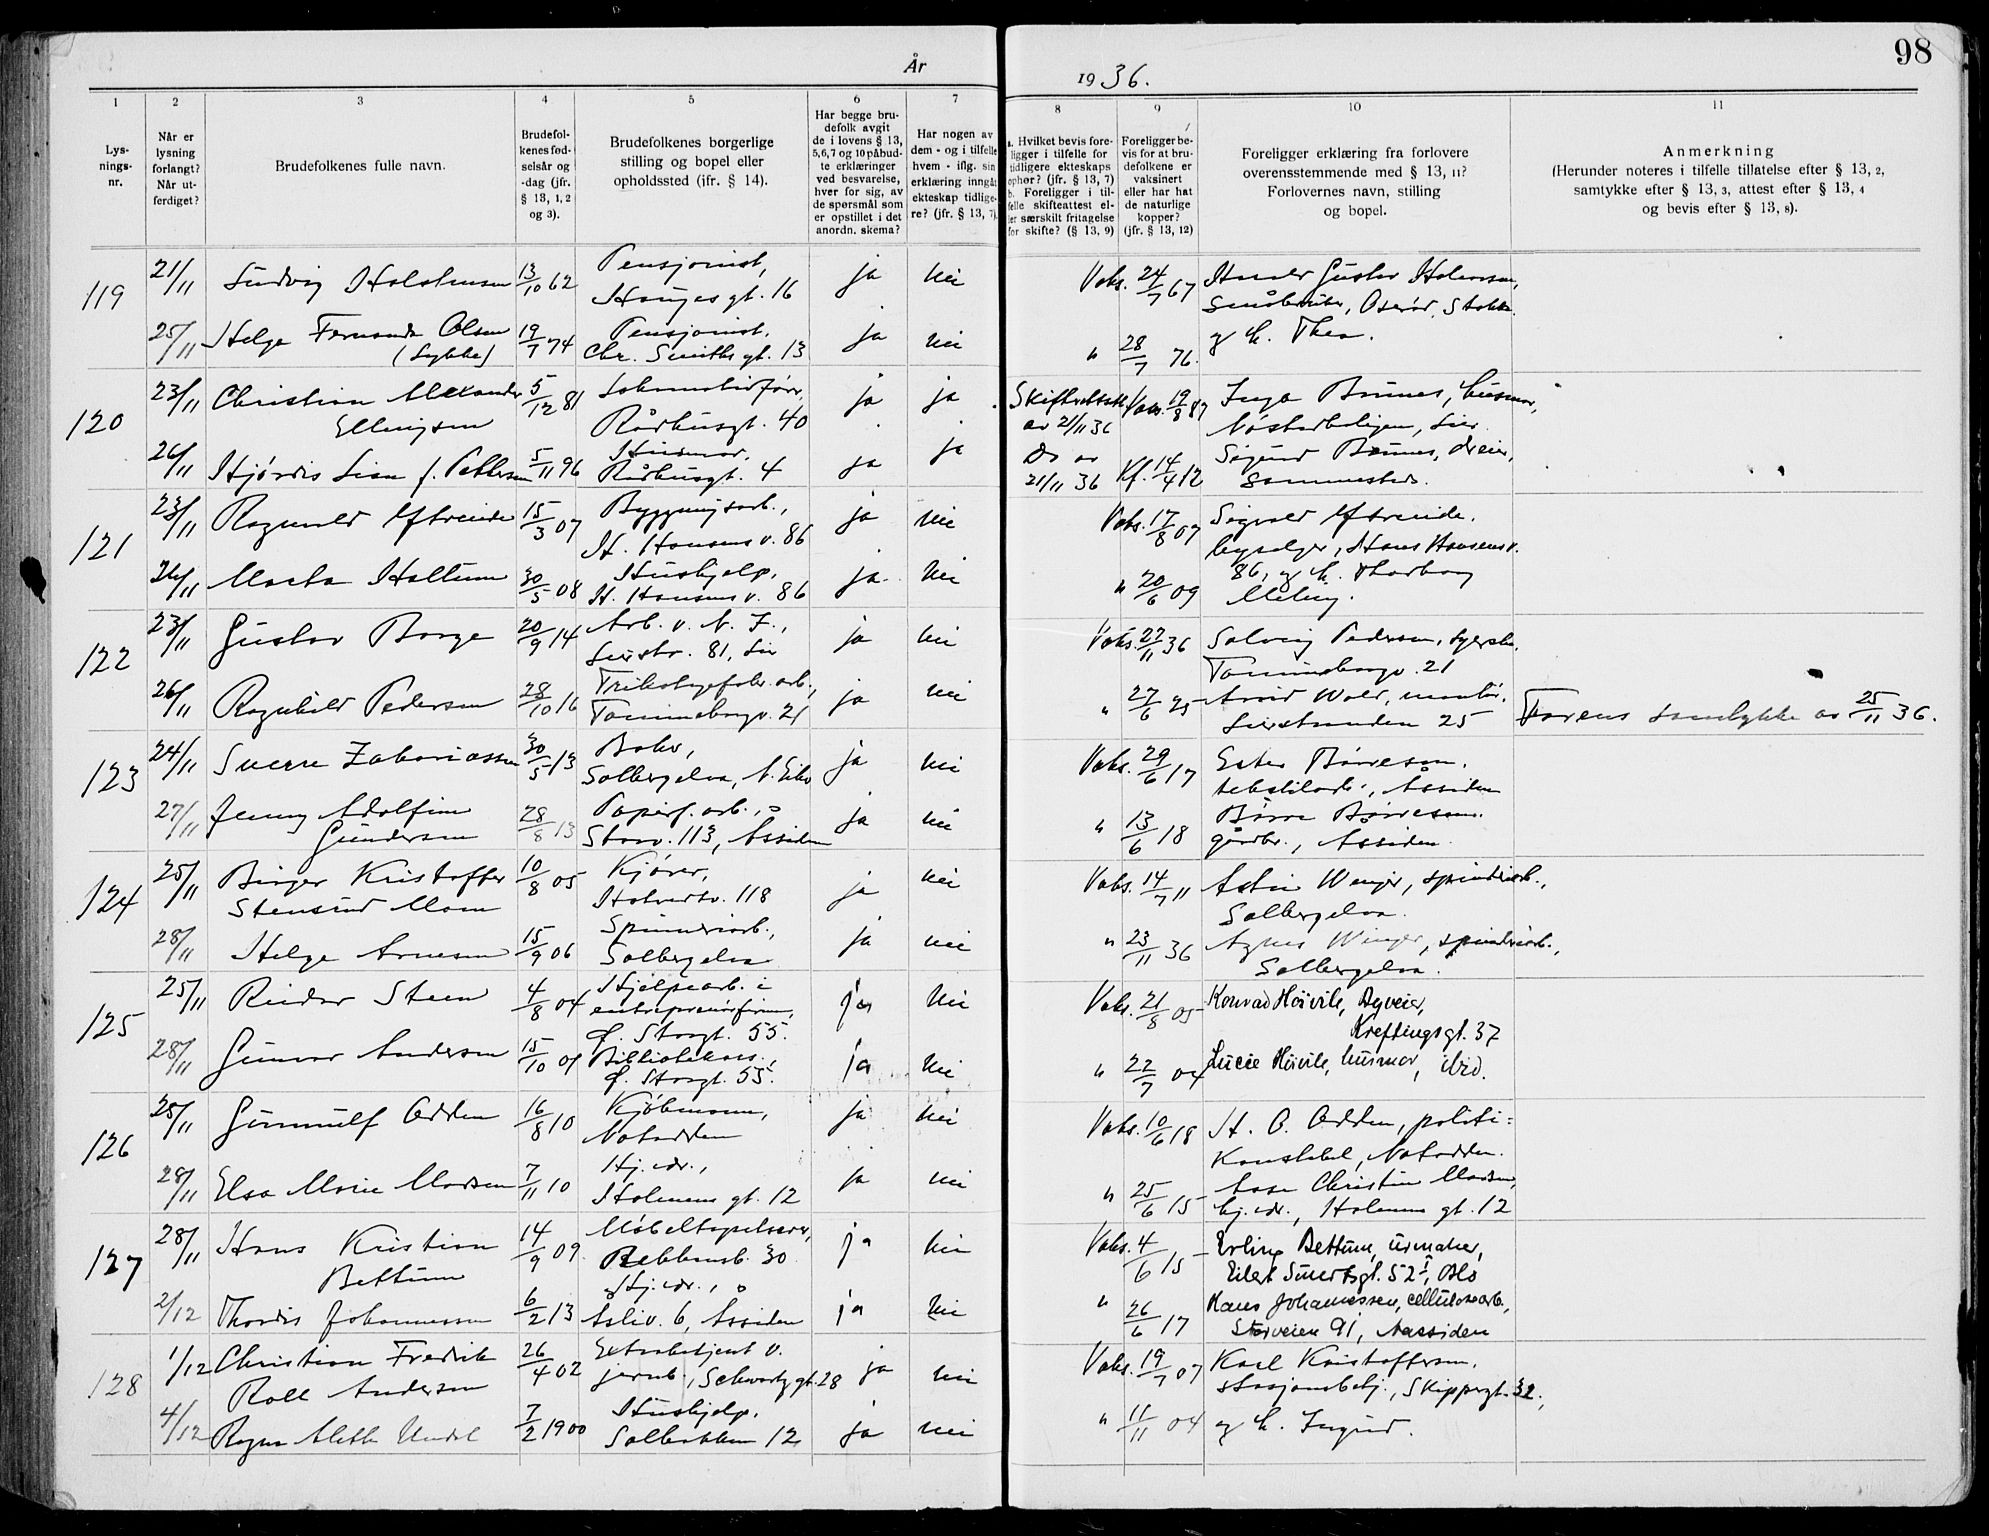 98
År
1936.
1
2
3
4
5
6
7
8
9
10
11
Lys-
nings-
nr.
Når er
lysning
forlangt?
Når ut-
ferdiget?
Brudefolkenes fulle navn.
Brudefol-
kenes fød-
selsår og
-dag (jfr.
§ 13, 1, 2
og 3).
Brudefolkenes borgerlige
stilling og bopel eller
opholdssted (ifr. § 14).
Har begge bru-
defolk avgit
de i lovens § 13,
5,6,7 og 10 påbud-
te erklæringer
ved besvarelse,
hver for sig, av
de spørsmål som
er opstillet i det
anordn. skema?
Har nogen av
dem - og i tilfelle
hvem - iflg. sin
erklæring inngåt
ekteskap tidlige-
re? (jfr. § 13, 7).
a. Hvilket bevis fore-
ligger i tilfelle for
tidligere ekteskaps
ophør? (jfr. § 13, 7)
b. Foreligger i til-
felle skifteattest el-
ler særskilt fritagelse
for skifte? (§ 13, 9)
Foreligger be-
vis for at bru-
defolkene er
vaksinert
eller har hat
de naturlige
kopper?
(jfr. § 13, 12)
Foreligger erklæring fra forlovere
overensstemmende med § 13, 11?
Forlovernes navn, stilling
og bopel.
Anmerkning
(Herunder noteres i tilfelle tillatelse efter § 13, 2,
samtykke efter § 13, 3, attest efter § 13, 4
og bevis efter § 13, 8).
119
21/11 Ludvig Holstensen 13/10 62 Pensjonist, ja nei Vaks. 24/7 67
Hauges gt. 16
Småbruker, Oserød, Stokke
25/11 Helga Fernanda Olsen 19/7 74 Pensjonist, ja nei " 28/7 76. og h. Thea.
(Lykke) Chr. Smiths gt. 13
120
23/11 Christian Alexander 5/12 81 Lokomotivfører, ja ja Vaks. 19/8 87 Inga Brunes, husmor,
Ellingsen Rådhusgt. 40 av 21/11 36
26/11 Hjørdis Lien f. Pettersen 5/11 96 Husmor, ja ja Do av Kf. 14/4 12 Sigurd Brunes, dreier,
Rådhusgt. 4 21/11 36 sammesteds.
121
23/11 Ragnvald Eftreide 15/3 07 Bygningsarb., ja nei Vaks. 17/8 07 Sigvald Eftreide,
H. Hansens v. 86 Hans Hansens v.
26/11 Marta Holtum 30/5 08 Hushjelp, ja nei " 20/6 09 86, og h. Thorborg
H. Hansens v. 86
122
23/11 Gustav Borge 20/9 14 Arb. v. N. J., ja nei Vaks. 22/11 36 Solveig Pedersen, syerske,
Lierstr. 81, Lier 21
26/11 Ragnhild Pedersen 28/10 16 Trikotagefabr. arb., ja nei " 27/6 25 Arvid Wold, montør,
21 Lierstranden 25 Farens samtykke av 25/11 36.
123
24/11 Sverre Zakariassen 30/5 13 Baker, ja nei Vaks. 29/6 17 Ester Børresen,
Solbergelva, N. Eiker tekstilarb., Åssiden
27/11 Jenny Adolfine 28/8 13 Papirf. arb., ja nei " 13/6 18 Børre Børresen,
Gundersen Storv. 113, Åssiden gårdbr., Åssiden.
124
25/11 Birger Kristoffer 10/8 05 Kjører, ja nei Vaks. 14/7 11 Winger, spinneriarb.,
Stensrud Moen 118 Solbergelva.
28/11 Helga Arnesen 15/9 06 Spinneriarb., ja nei " 23/11 36 Agnes Winger, spinneriarb.,
Solbergelva Solbergelva.
125
25/11 Reidar Steen 4/8 04 Hjelpearb. i ja nei Vaks. 21/8 05 Konrad Høivik, Dyveier,
entreprenørfirma, Kreftingsgt. 37
Ø. Storgt. 55.
28/11 Gunvor Andersen 15/10 01 Bibliotekass., ja nei " 22/7 04 Lucie Høivik, husmor, ibid.
Ø. Storgt. 55.
126
25/11 Gunnulf Odden 16/8 10 Kjøbmann, ja nei Vaks. 10/6 18 H. O. Odden, politi-
Notodden konstabel, Notodden.
28/11 Elsa Marie Madsen 7/11 10 Hj. vær., ja nei " 25/6 15 Aase Christine Madsen,
Holmens gt. 12 hj. vær., Holmens gt. 12
127
28/11 Hans Kristian 14/9 09. Møbeltapetserer, ja nei Vaks. 4/6 15 Erling Bettum, urmaker,
Bettum 30 Eilert Sundtsgt. 52 I, Oslo
2/12 Thordis Johannessen 6/2 13 Hj. vær., ja nei " 26/6 17 Hans Johannessen, cellulosearb.,
Åsliv. 6, Åssiden Storveien 91, Aassiden
128
1/12 Christian Fredrik 26/4 02 Extrabetjent v. ja nei Vaks. 19/7 07 Karl Kristoffersen,
Roll Andersen jernb., Schwartz gt. 28 stasjonsbetj., Skippergt. 32,
4/12 Ragna Alette Undal 7/2 1900 Hushjelp, ja nei " 11/11 04 og h. Ingrid.
Solbakken 12